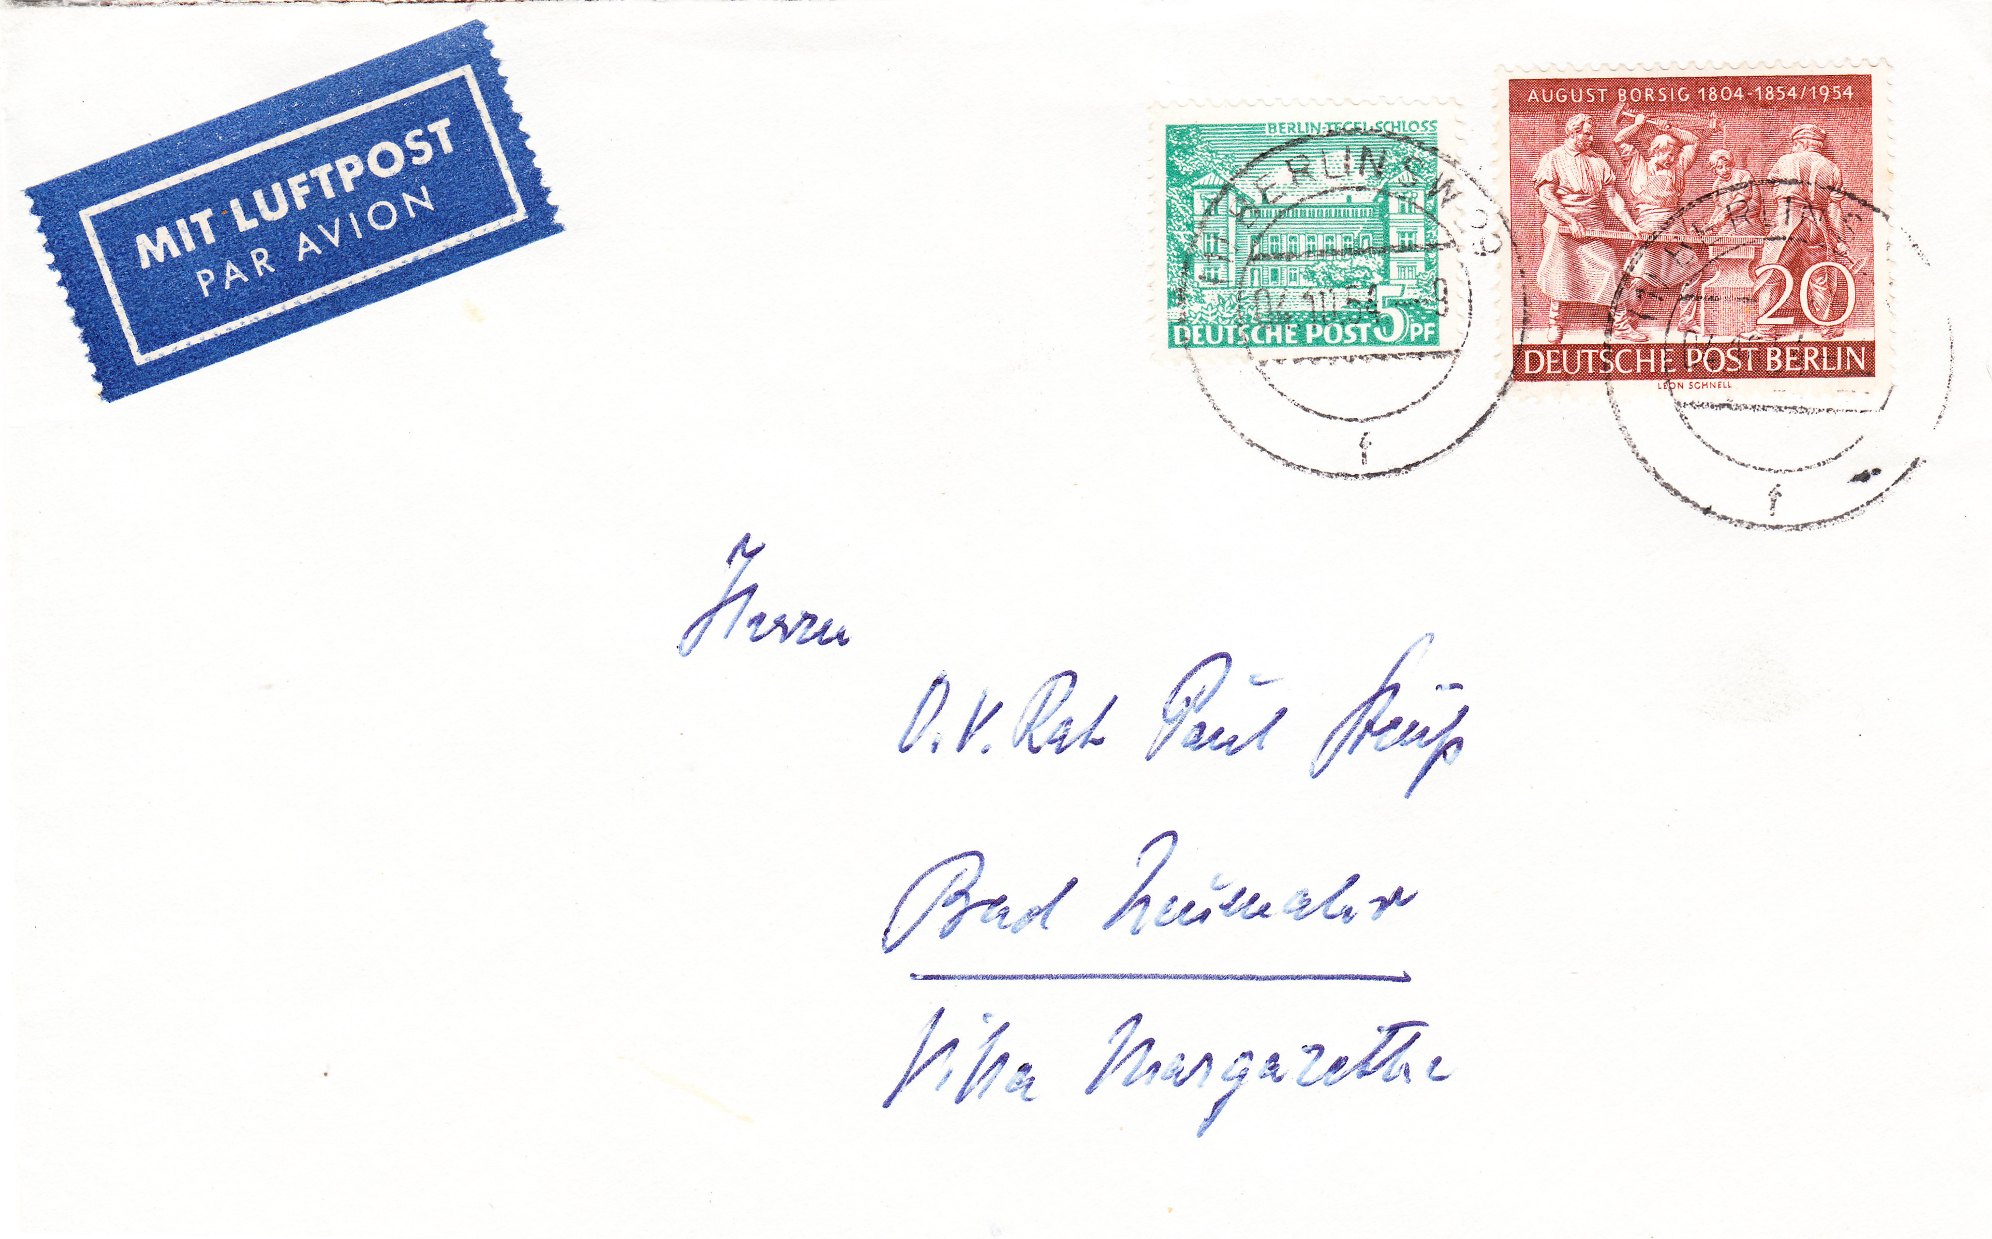 MIT LUFTPOST
PAR AVION
BERLIN-TEGEL-SCHLOSS
DEUTSCHE POST 5 PF
AUGUST BORSIG 1804-1854/1954
20
DEUTSCHE POST BERLIN
LEON SCHNELL
BERLIN SW
f
BERLIN S
f
Herrn
O.V. Rat Paul
Bad Neuenahr
Villa Margarethe